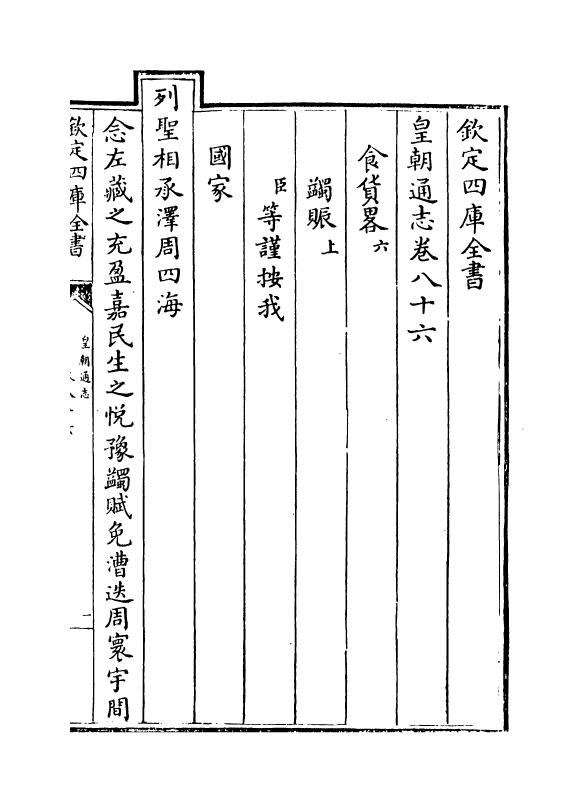 欽定四庫全書
皇朝通志卷八十六
食貨畧六
蠲賑上
臣等謹按我
國家
列聖相承澤周四海
念左藏之充盈嘉民生之悅豫蠲賦免漕迭周寰宇間
欽定四庫全書
皇朝通志